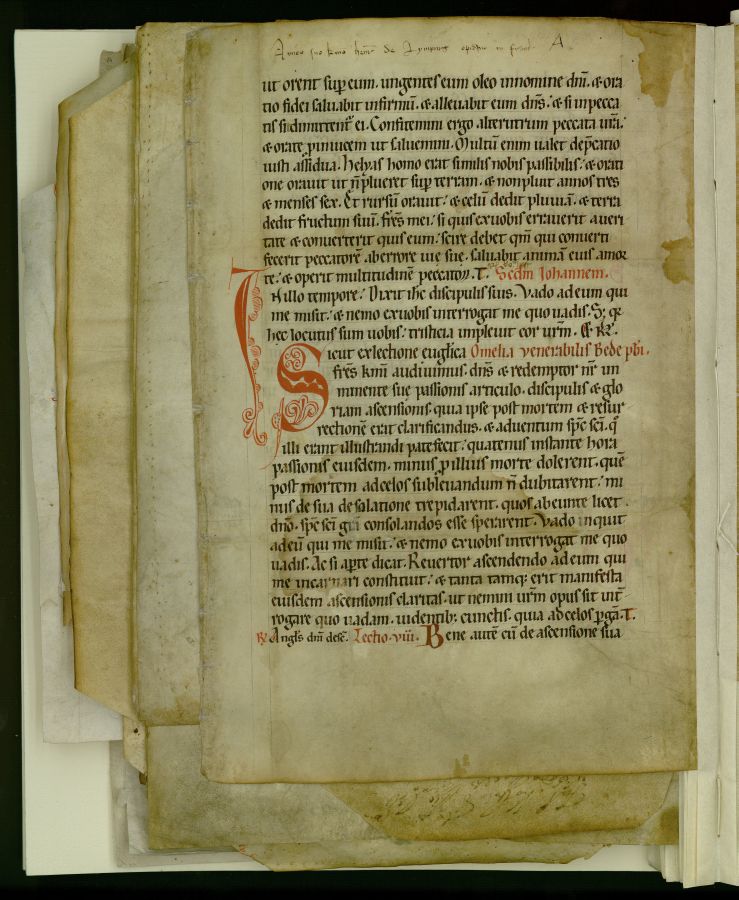 ut orent sup eum. ungentes eum oleo in nomine dnī. & ora
tio fidei saluabit infirmū. & alleuiabit eum dn̄s. & si in pecca
tis sit dimittent̄ ei. Confitemini ergo alterutrum peccata ur̄a.
& orate p inuicem ut saluemini. Multū enim ualet dep̄catio
iusti assidua. helyas homo erat similis nobis passibilis. & orati
one orauit ut n̄ plueret sup terram. & non pluit annos tres
& menses sex. Et rursū orauit. & celū dedit pluuiā. & terra
dedit fructum suū. fr̄es mei. si quis ex uobis errauerit a ueri
tate & conuerterit quis eum. scire debet qm̄ qui conuerti
fecerit peccatorē ab errore uie sue. saluabit animā eius a mor
te. & operit multitudinē peccatoꝝ. T. Scdm Iohannem.
In illo tempore. Dixit ih̄c discipulis suis. Vado ad eum qui
me misit. & nemo ex uobis interrogat me quo uadis. S; q̄
hec locutus sum uobis. tristicia impleuit cor ur̄m. & R̄.
Sicut ex lectione euglīca Omelia venerabilis Bede pbī.
fr̄s km̄i audiuimus. dn̄s & redemptor nr̄ in
minente sue passionis articulo. discipulis & glo
riam ascensionis. qua ipse post mortem & resur
rectionē erat clarificandus. & aduentum sp̄c scī. q̄
illi erant illustrandi patefecit. quatenus instante hora
passionis eiusdem. minus p illius morte dolerent. quē
post mortem ad celos subleuandum n̄ dubitarent. mi
nus de sua desolatione trepidarent. quos abeunte licet
dn̄o. sp̄c scī grā consolandos esse sperarent. Vado inquit
ad eū qui me misit. & nemo ex uobis interrogat me quo
uadis. Ac si apte dicat. Reuertor ascendendo ad eum qui
me incarnari constituit. & tanta tamq; erit manifesta
eiusdem ascensionis claritas. ut nemini ur̄m opus sit int̄
rogare quo uadam. uidentib; cunctis. quia ad celos pgā. T.
R̄ Angl̄s dnī desc̄. Lectio. viii. Bene autē cū de ascensione sua